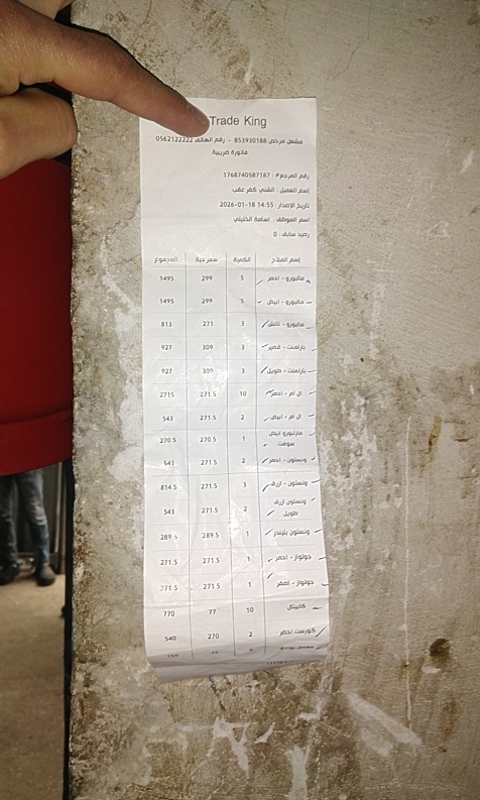 Trade King
مشغل مرخص 853930188 - رقم الهاتف 0562122222
فاتورة ضريبية
رقم المرجع#: 1768740587187
إسم العميل: الشني كفر عقب
تاريخ الإصدار: 14:55 2026-01-18
اسم الموظف: اسامة الخليلي
رصيد سابق: 0
إسم المنتج الكمية سعر حبة المجموع
مالبورو - احمر 5 299 1495
مالبورو - ابيض 5 299 1495
مالبورو - تاتش 3 271 813
بارلمنت - قصير 3 309 927
بارلمنت - طويل 3 309 927
ال ام - احمر 10 271.5 2715
ال ام - ابيض 2 271.5 543
مارلبورو ابيض سوفت 1 270.5 270.5
ونستون - احمر 2 271.5 543
ونستون - ازرق 3 271.5 814.5
ونستون ازرق طويل 2 271.5 543
ونستون بليندز 1 289.5 289.5
جولواز - احمر 1 271.5 271.5
جولواز - اصفر 1 271.5 271.5
كابيتال 10 77 770
كورست احمر 2 270 540